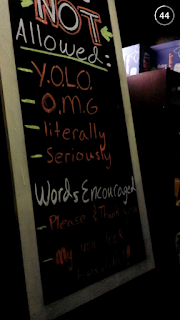 NOT
Allowed:
- Y.O.L.O.
- O.M.G
- literally
- Seriously
Words Encouraged
- Please &
- My you look
44